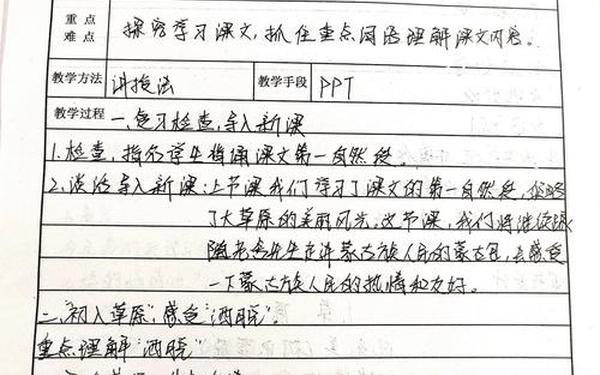 重点
难点
探究学习课文,抓住重点词语理解课文内容。
教学方法 讲授法 教学手段 PPT
教学过程 一、复习检查,导入新课
1.检查,指名学生背诵课文第一自然段。
2.谈话导入新课:上节课我们学习了课文的第一自然段,领略
了大草原的美丽风光,这节课,我们将继续跟
随老舍先生走进蒙古族人民的蒙古包,去感受
一下蒙古族人民的热情和友好。
二、“初入草原”,感受“洒脱”。
重点理解“洒脱”